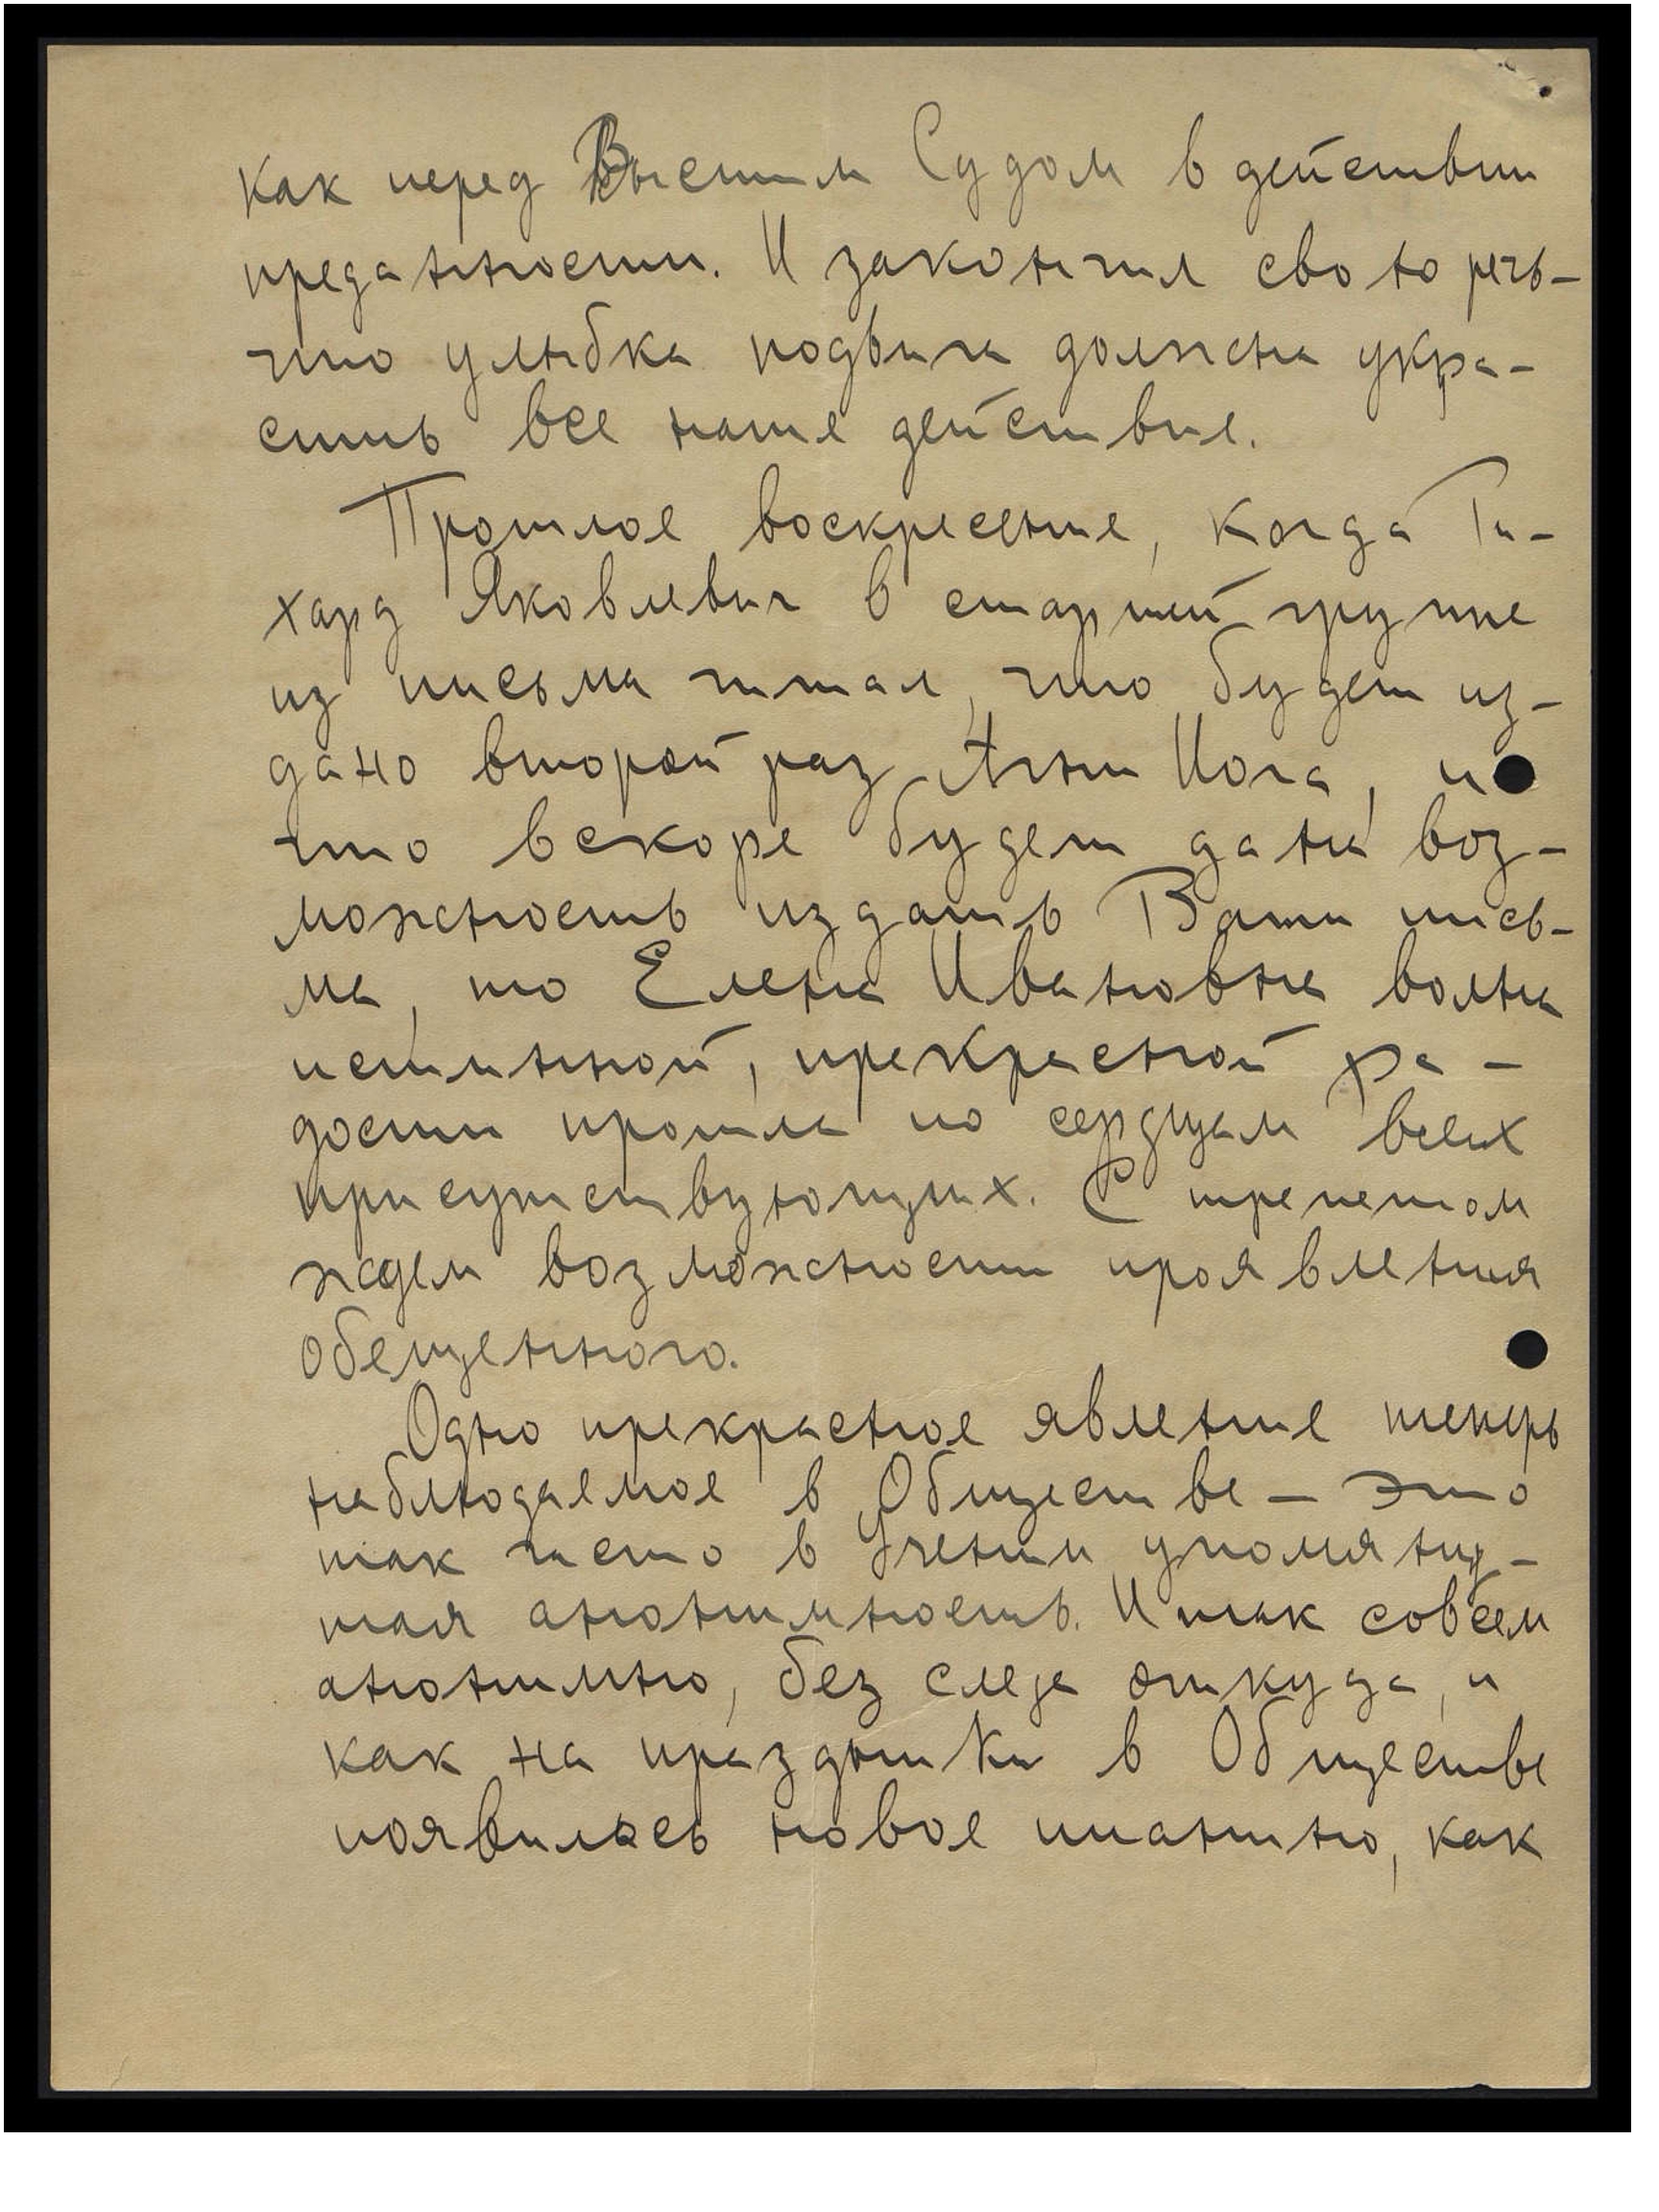 как перед Высшим Судом в действии
преданности. И закончил свою речь –
что улыбка подвига должна укра-
сить все наше действие.
Прошлое воскресение, когда Ги-
хард Яковлевич в старшей группе
из письма читал, что будет из-
дано второй раз Агни Йога, и
что вскоре будет дана воз-
можность издать Ваши пись-
ма, то Елена Ивановна волна
истинной, прекрасной ра-
дости прошла по сердцам всех
присутствующих. С трепетом
ждем возможности проявления
обещенного.
Одно прекрасное явление теперь
наблюдаемое в Обществе – это
так часто в Учении упомяну-
тая анонимность. И так совсем
анонимно, без следа откуда, и
как на праздники в Обществе
появилось новое пианино, как